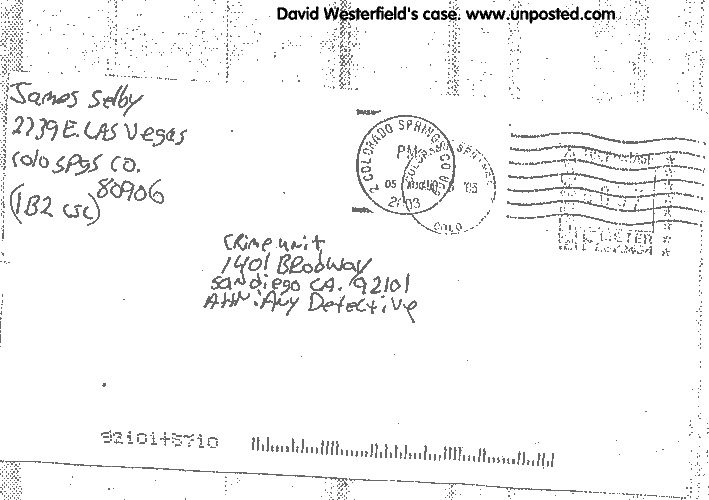 David Westerfield's case. www.unposted.com
James Selby
2739 E. LAS Vegas
Colo SPgs CO.
80906
(1B2 CJC)
COLORADO SPRINGS CO
PM
05
2003
COLO
'03
METER
CRime unit
1401 BRodWay
San diego CA. 92101
Attn: Any Detective
92101+5710